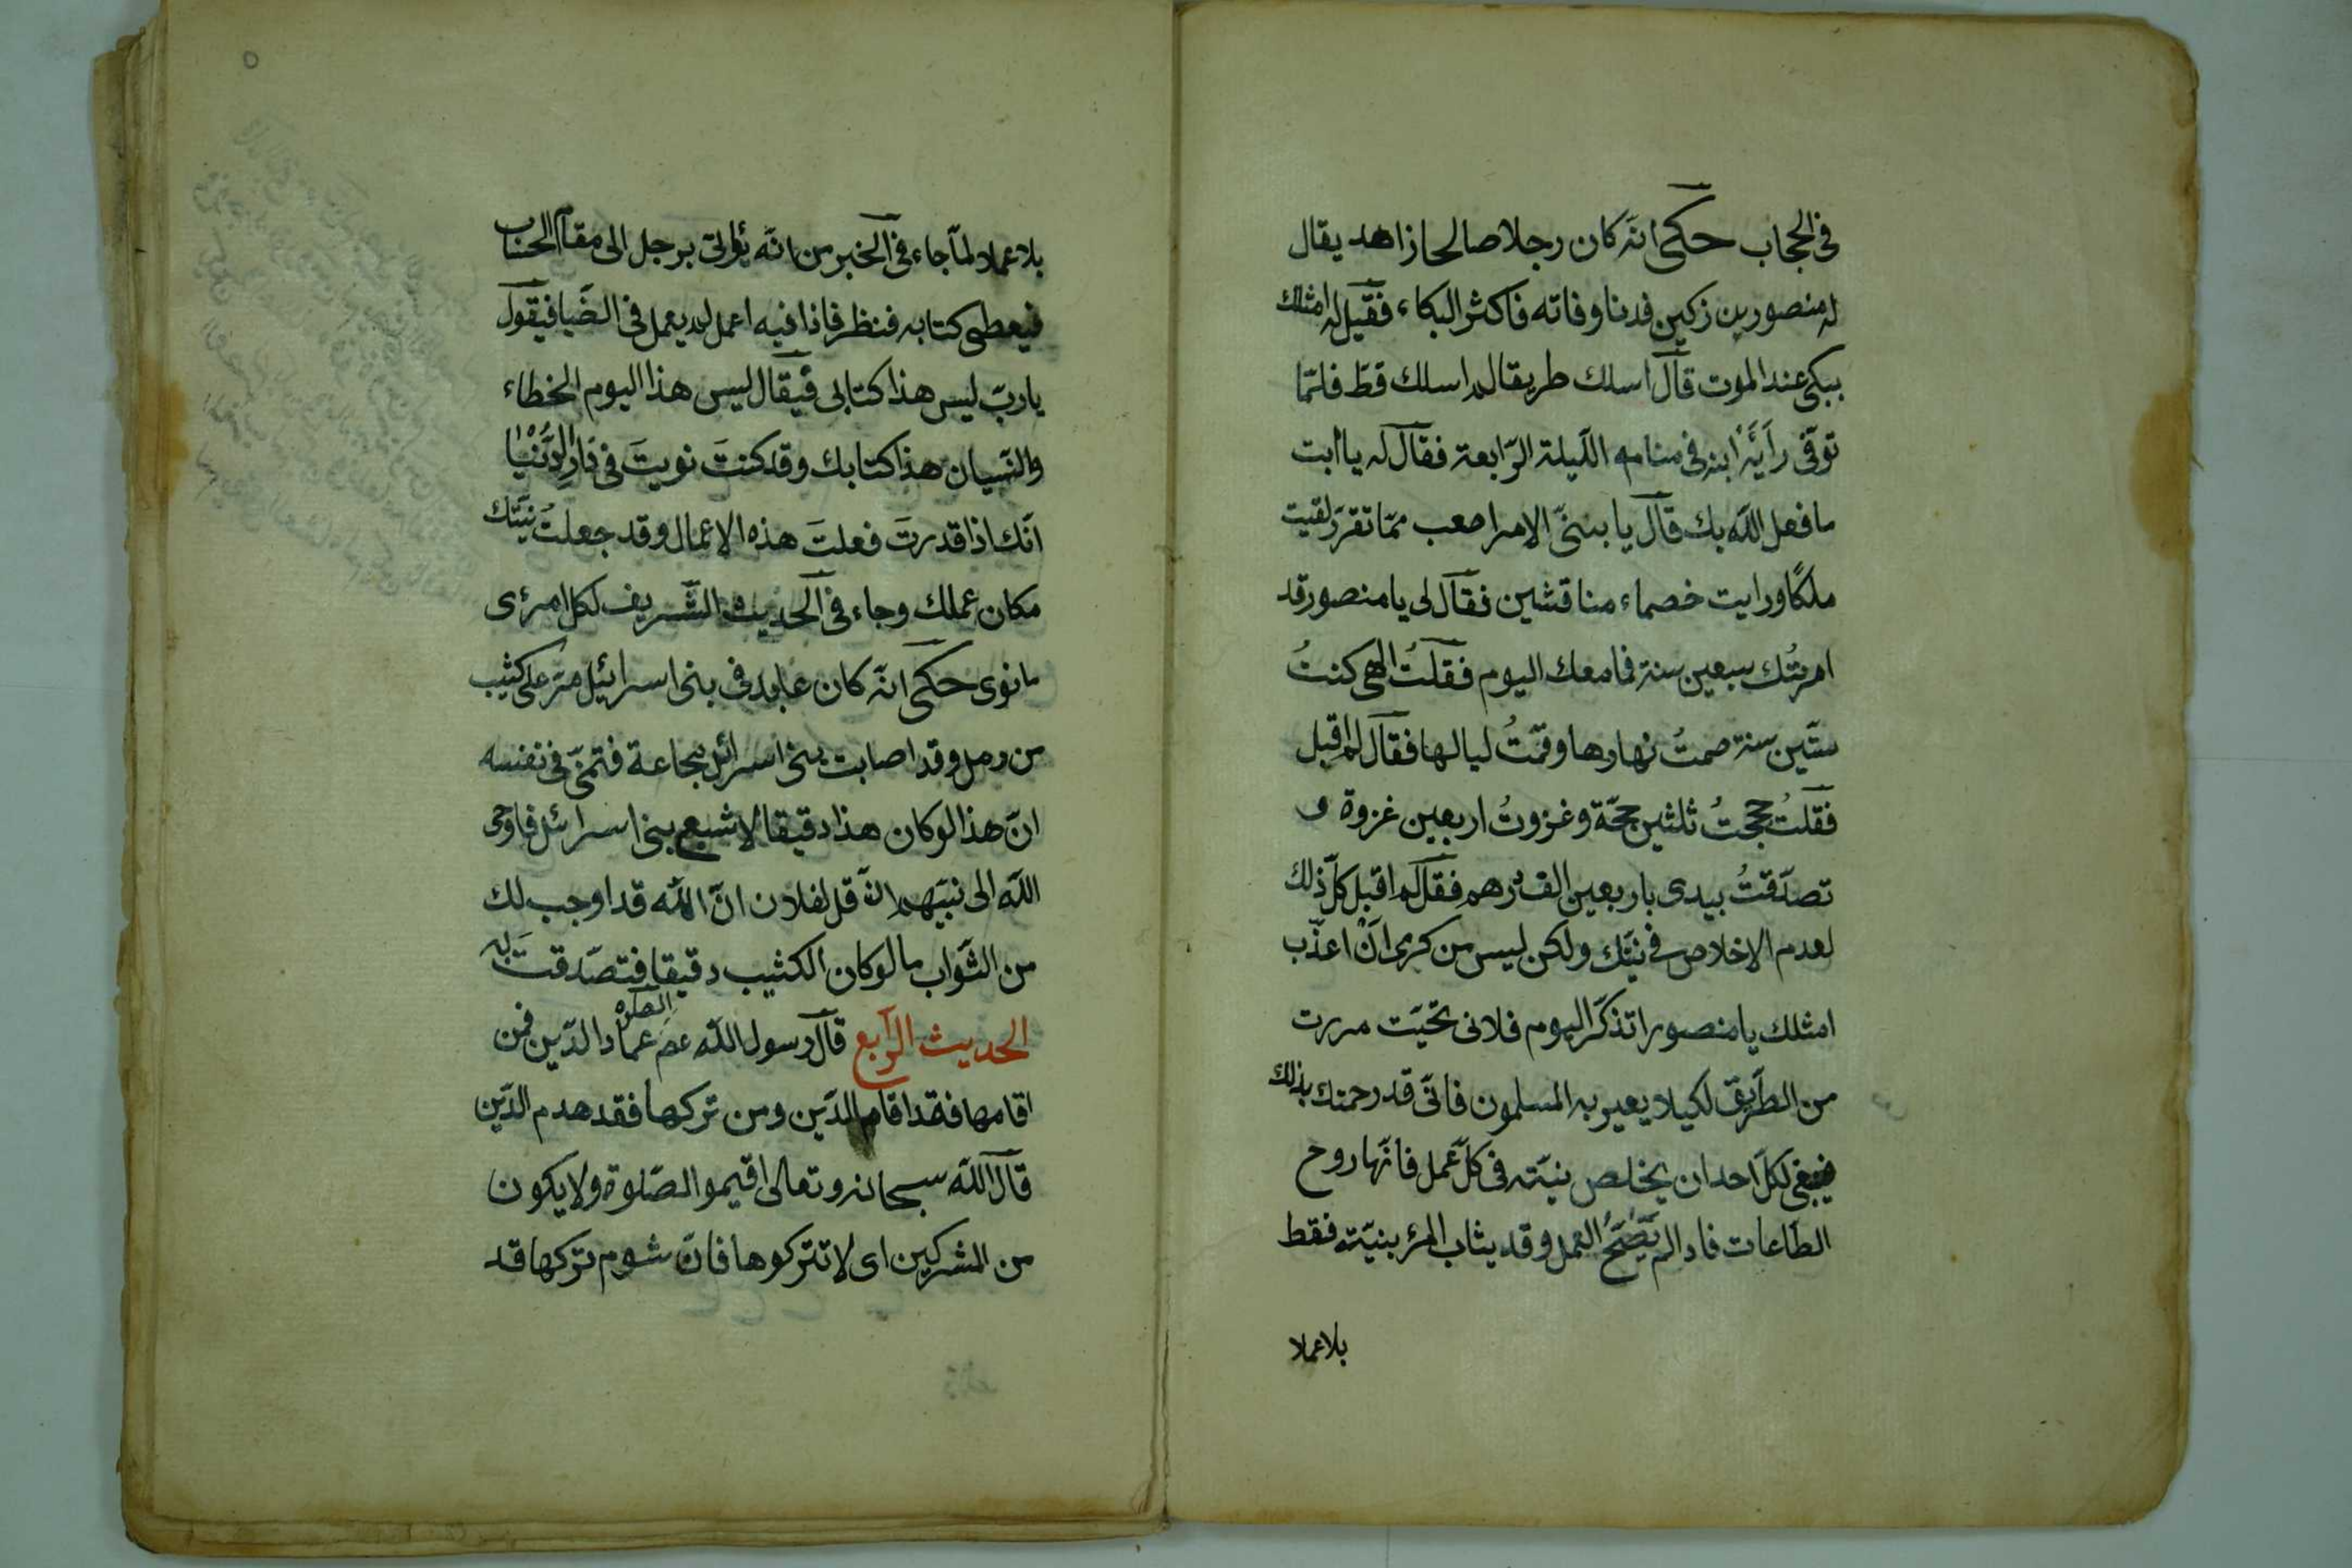 في الحجاب حكى انّه كان رجلا صالحا زاهد يقال
له منصور بن زكين فدنا وفاته فاكثر البكاء فقيل له امثلك
يبكى عند الموت قال اسلك طريقا لم اسلك قطّ فلمّا
توفّى رأيه ابنه في منامه الليلة الرّابعة فقال له يا ابت
ما فعل الله بك قال يا بنىّ الامر اصعب ممّا تقرر لقيت
ملكًا ورايت خصماء مناقشين فقال لى يا منصور قد
امرتُك سبعين سنة فما معك اليوم فقلتُ الهى كنتُ
ستّين سنة صمتُ نهارها وقمتُ ليالها فقال لم اقبل
فقلتُ حججتُ ثلثين حجّة وغزوتُ اربعين غزوة و
تصدّقتُ بيدى باربعين الف درهم فقال لم اقبل كلّ ذلك
لعدم الاخلاص في نيتك ولكن ليس من كرمى انْ اعذّب
امثلك يا منصور اتذكر اليوم فلانى تحيّت مررت
من الطّريق لكيلا يعير به المسلمون فانّى قد رحمتك بذلك
فينبغى لكلّ احد ان يخلص نيّته في كلّ عمل فانّها روح
الطّاعات فاد الم يَصِحُّ العمل وقد يثاب المرء بنيّته فقط
بلا عملا
بلا عملا لما جاء في الخبر من انّه يؤتى برجل الى مقام الحساب
فيعطى كتابه فنظر فاذا فيه اعمل لم يعمل في الدّنيا فيقول
يا ربّ ليس هذا كتابى فيقال ليس هذا اليوم الخطاء
والنّسيان هذا كتابك وقد كنتَ نويتَ في دَارِ الدُّنْيَا
انّك اذا قدرتَ فعلتَ هذه الاعمال وقد جعلتُ نيّتك
مكان عملك وجاء في الحديث الشّريف لكل امرئ
ما نوى حكى انّه كان عابد في بنى اسرائيل مرّ على كثيب
من رمل وقد اصابت بنى اسرائيل مجاعة فتمنّى في نفسه
انّ هذا لو كان هذا دقيقا لاشبع بنى اسرائل فاوحى
الله الى نبيّهم ان قل لفلان انّ الله قد اوجب لك
من الثّواب ما لو كان الكثيب دقيقا فتصدّقتَ به
الحديث الرّابع قال رسول الله عم الصلوة عماد الدّين فمن
اقامها فقد اقام الدّين ومن تركها فقد هدم الدّين
قال الله سبحانه وتعالى اقيموا الصّلوة ولا يكون
من المشركين اى لا تتركوها فانّ شوم تركها قد